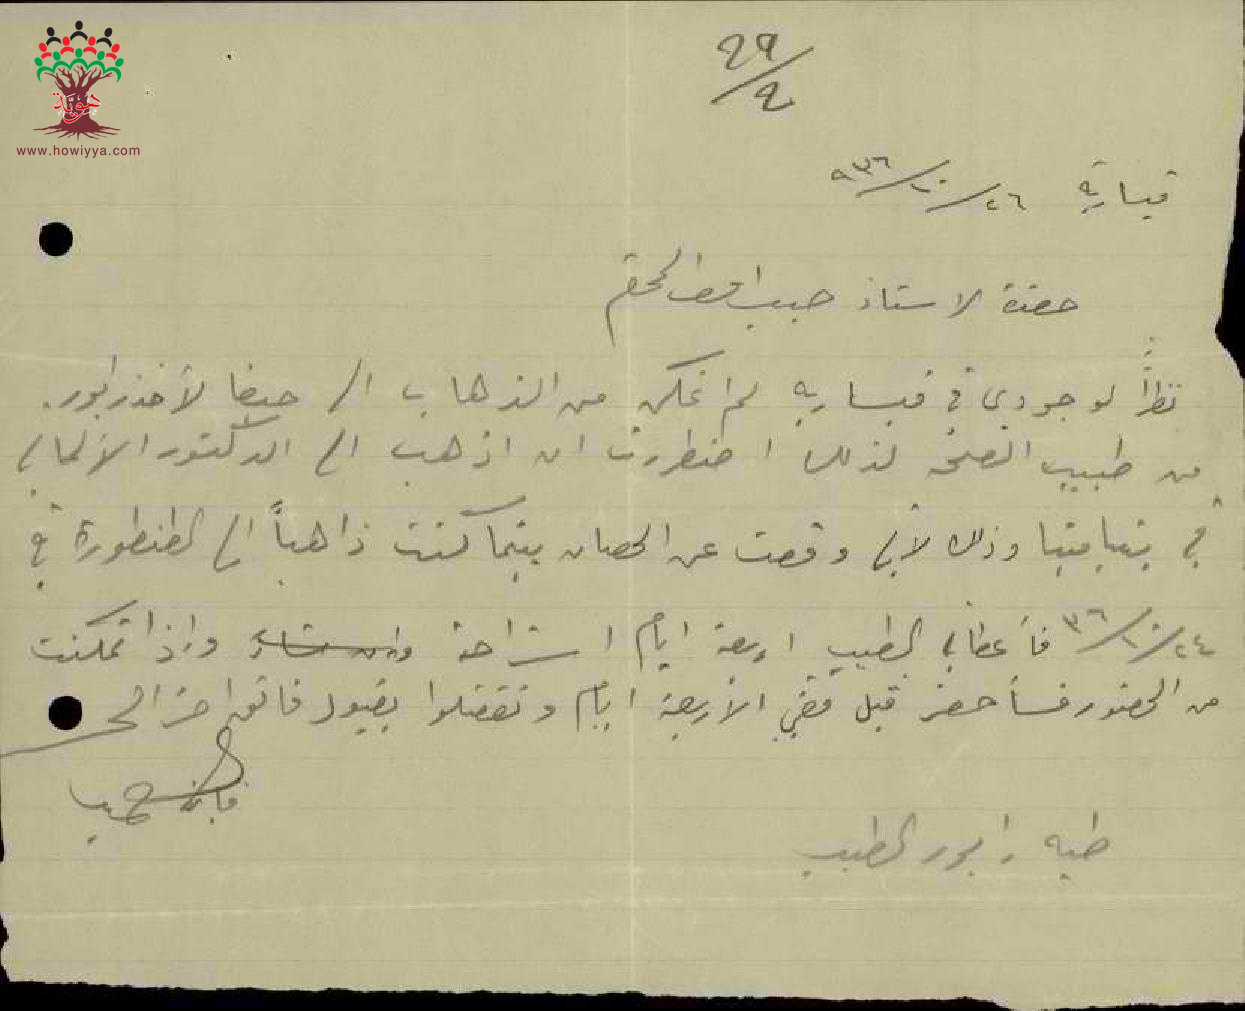 هوية
www.howiyya.com
٢٩/٢
قيسارية ٢٦/١٠/٩٣٦
حضرة الاستاذ حبيب المحترم
نظراً لوجودي في قيسارية لم اتمكن من الذهاب الى حيفا لآخذ رابور
من طبيب الصحة لذلك اضطررت ان اذهب الى الدكتور الألماني
في بنيامينا وذلك لأني وقعت عن الحصان بينما كنت ذاهباً الى الطنطورة في
٢٤/١٠/٣٦ فأعطاني الطبيب اربعة ايام استراحة واذا تمكنت
من الحضور فسأحضر قبل مضي الأربعة ايام وتفضلوا بقبول فائق احترامي
طيه رابور الطبيب